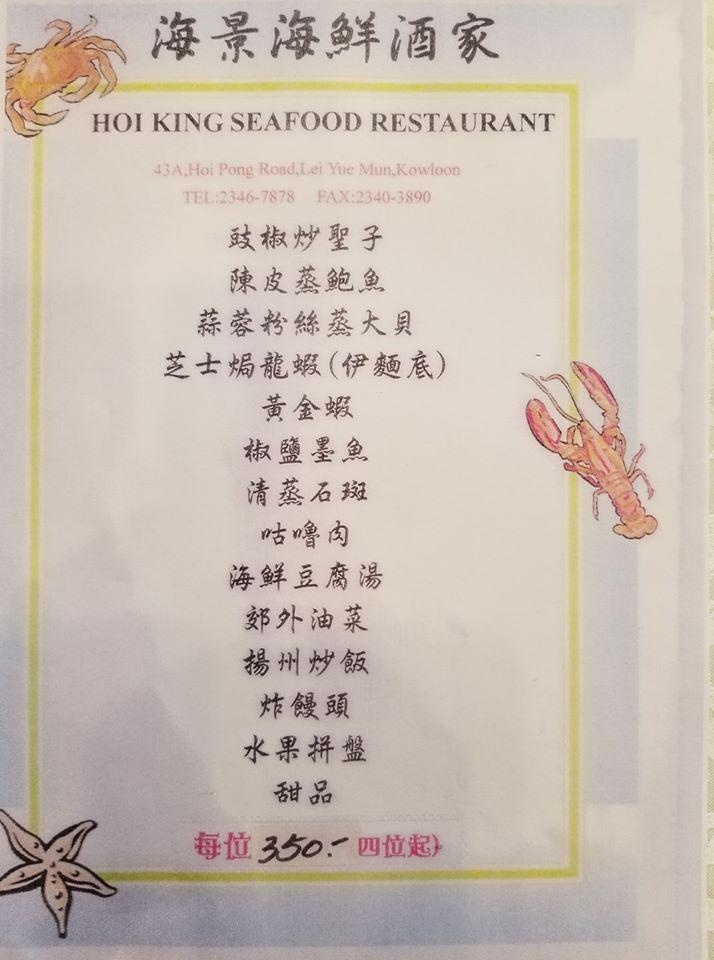 海景海鮮酒家
HOI KING SEAFOOD RESTAURANT
43A,Hoi Pong Road,Lei Yue Mun,Kowloon
TEL:2346-7878 FAX:2340-3890
豉椒炒聖子
陳皮蒸鮑魚
蒜蓉粉絲蒸大貝
芝士焗龍蝦(伊麵底)
黃金蝦
椒鹽墨魚
清蒸石斑
咕嚕肉
海鮮豆腐湯
郊外油菜
揚州炒飯
炸饅頭
水果拼盤
甜品
每位350.- 四位起)